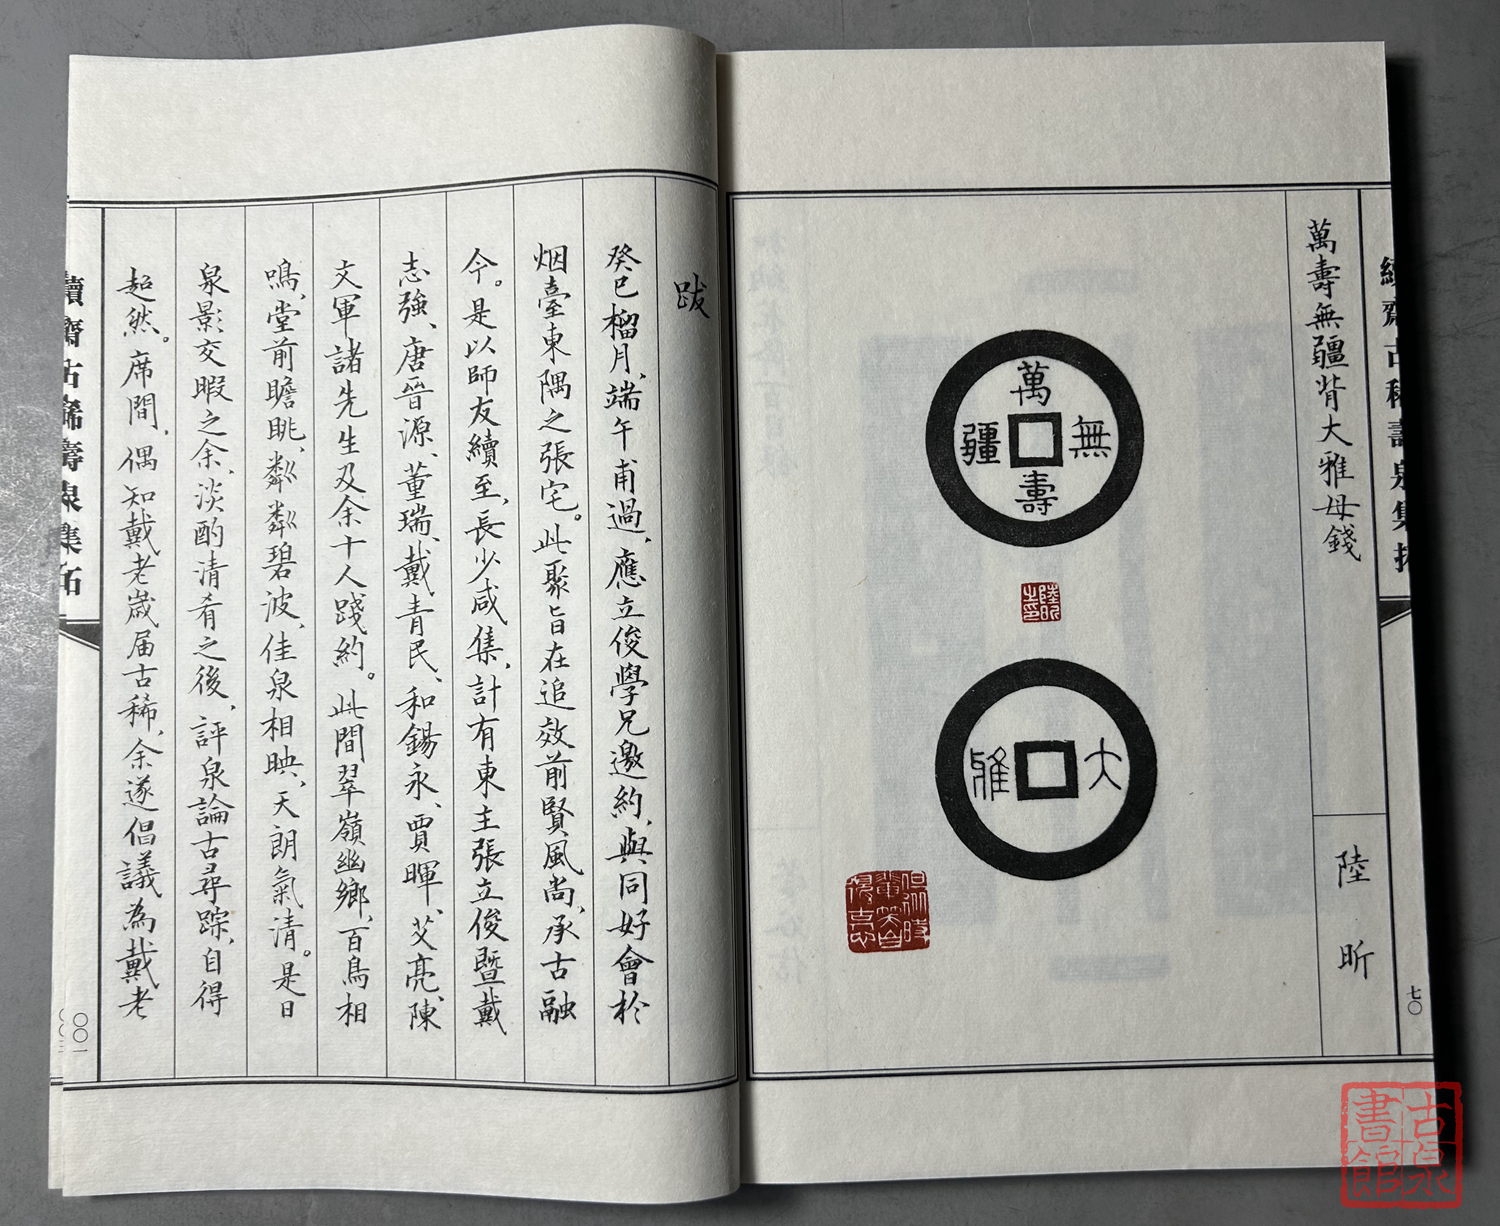 續齋古稀壽泉集拓
七〇
萬壽無疆背大雅母錢
陸昕
萬壽無疆
陸昕之印
大雅
跋
癸巳榴月、端午甫過、應立俊學兄邀約、與同好會於
烟臺東隅之張宅。此聚旨在追效前賢風尚、承古融
今。是以師友續至、長少咸集、計有東主張立俊暨戴
志強、唐晉源、董瑞、戴青民、和錫永、賈暉、艾亮、陳
文軍諸先生及余十人踐約。此間翠嶺幽鄉、百鳥相
鳴、堂前瞻眺、粼粼碧波、佳泉相映、天朗氣清。是日
泉影交暇之余、淡酌清肴之後、評泉論古尋踪、自得
超然。席間、偶知戴老歲届古稀、余遂倡議為戴老
續齋古稀壽泉集拓
〇〇一
古泉書館